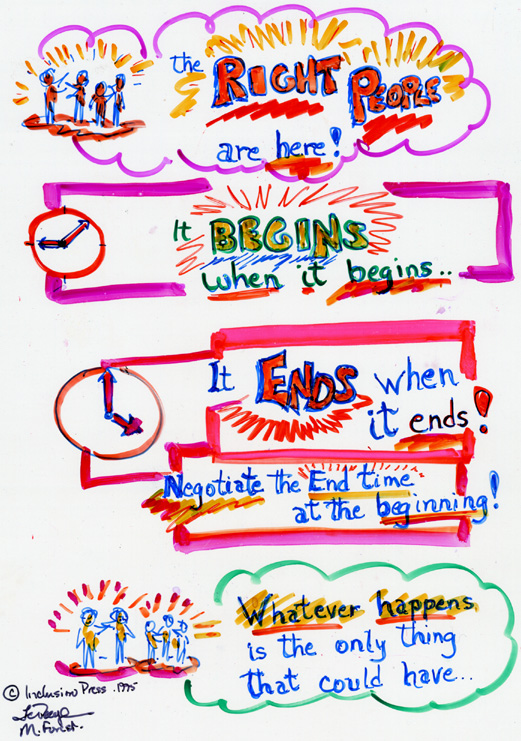 the RIGHT PEOPLE
are here!
It BEGINS
when it begins..
It ENDS when
it ends!
Negotiate the End time
at the beginning!
Whatever happens
is the only thing
that could have...
© Inclusion Press .1995
M. Forest.